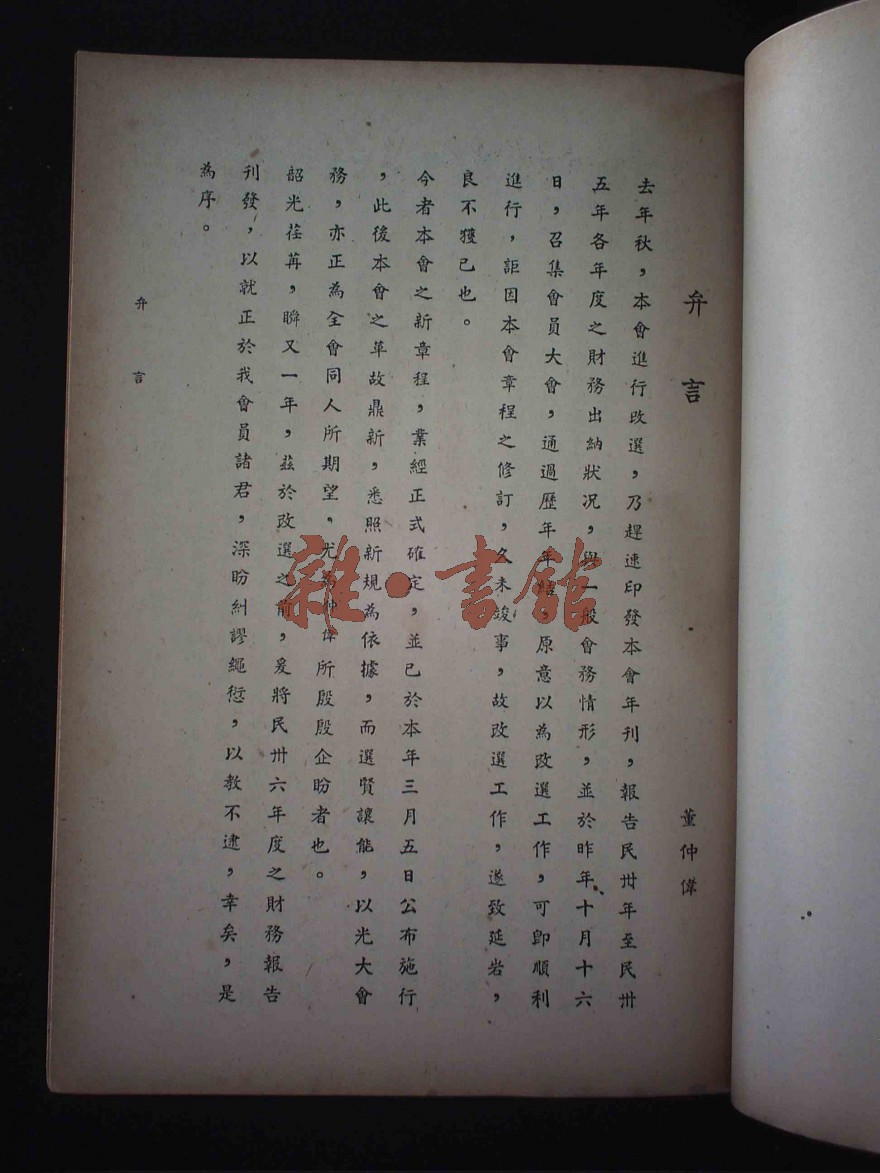 弁言
董仲偉
去年秋，本會進行改選，乃趕速印發本會年刊，報告民卅年至民卅
五年各年度之財務出納狀況，與一般會務情形，並於昨年十月十六
日，召集會員大會，通過歷年年結，原意以為改選工作，可卽順利
進行，詎因本會章程之修訂，久未竣事，故改選工作，遂致延宕，
良不獲已也。
今者本會之新章程，業經正式確定，並已於本年三月五日公布施行
，此後本會之革故鼎新，悉照新規為依據，而選賢讓能，以光大會
務，亦正為全會同人所期望。尤為仲偉所殷殷企盼者也。
韶光荏苒，瞬又一年，茲於改選之前，爰將民卅六年度之財務報告
刊發，以就正於我會員諸君，深盼糾謬繩愆，以教不逮，幸矣，是
為序。
弁言
雜·書館